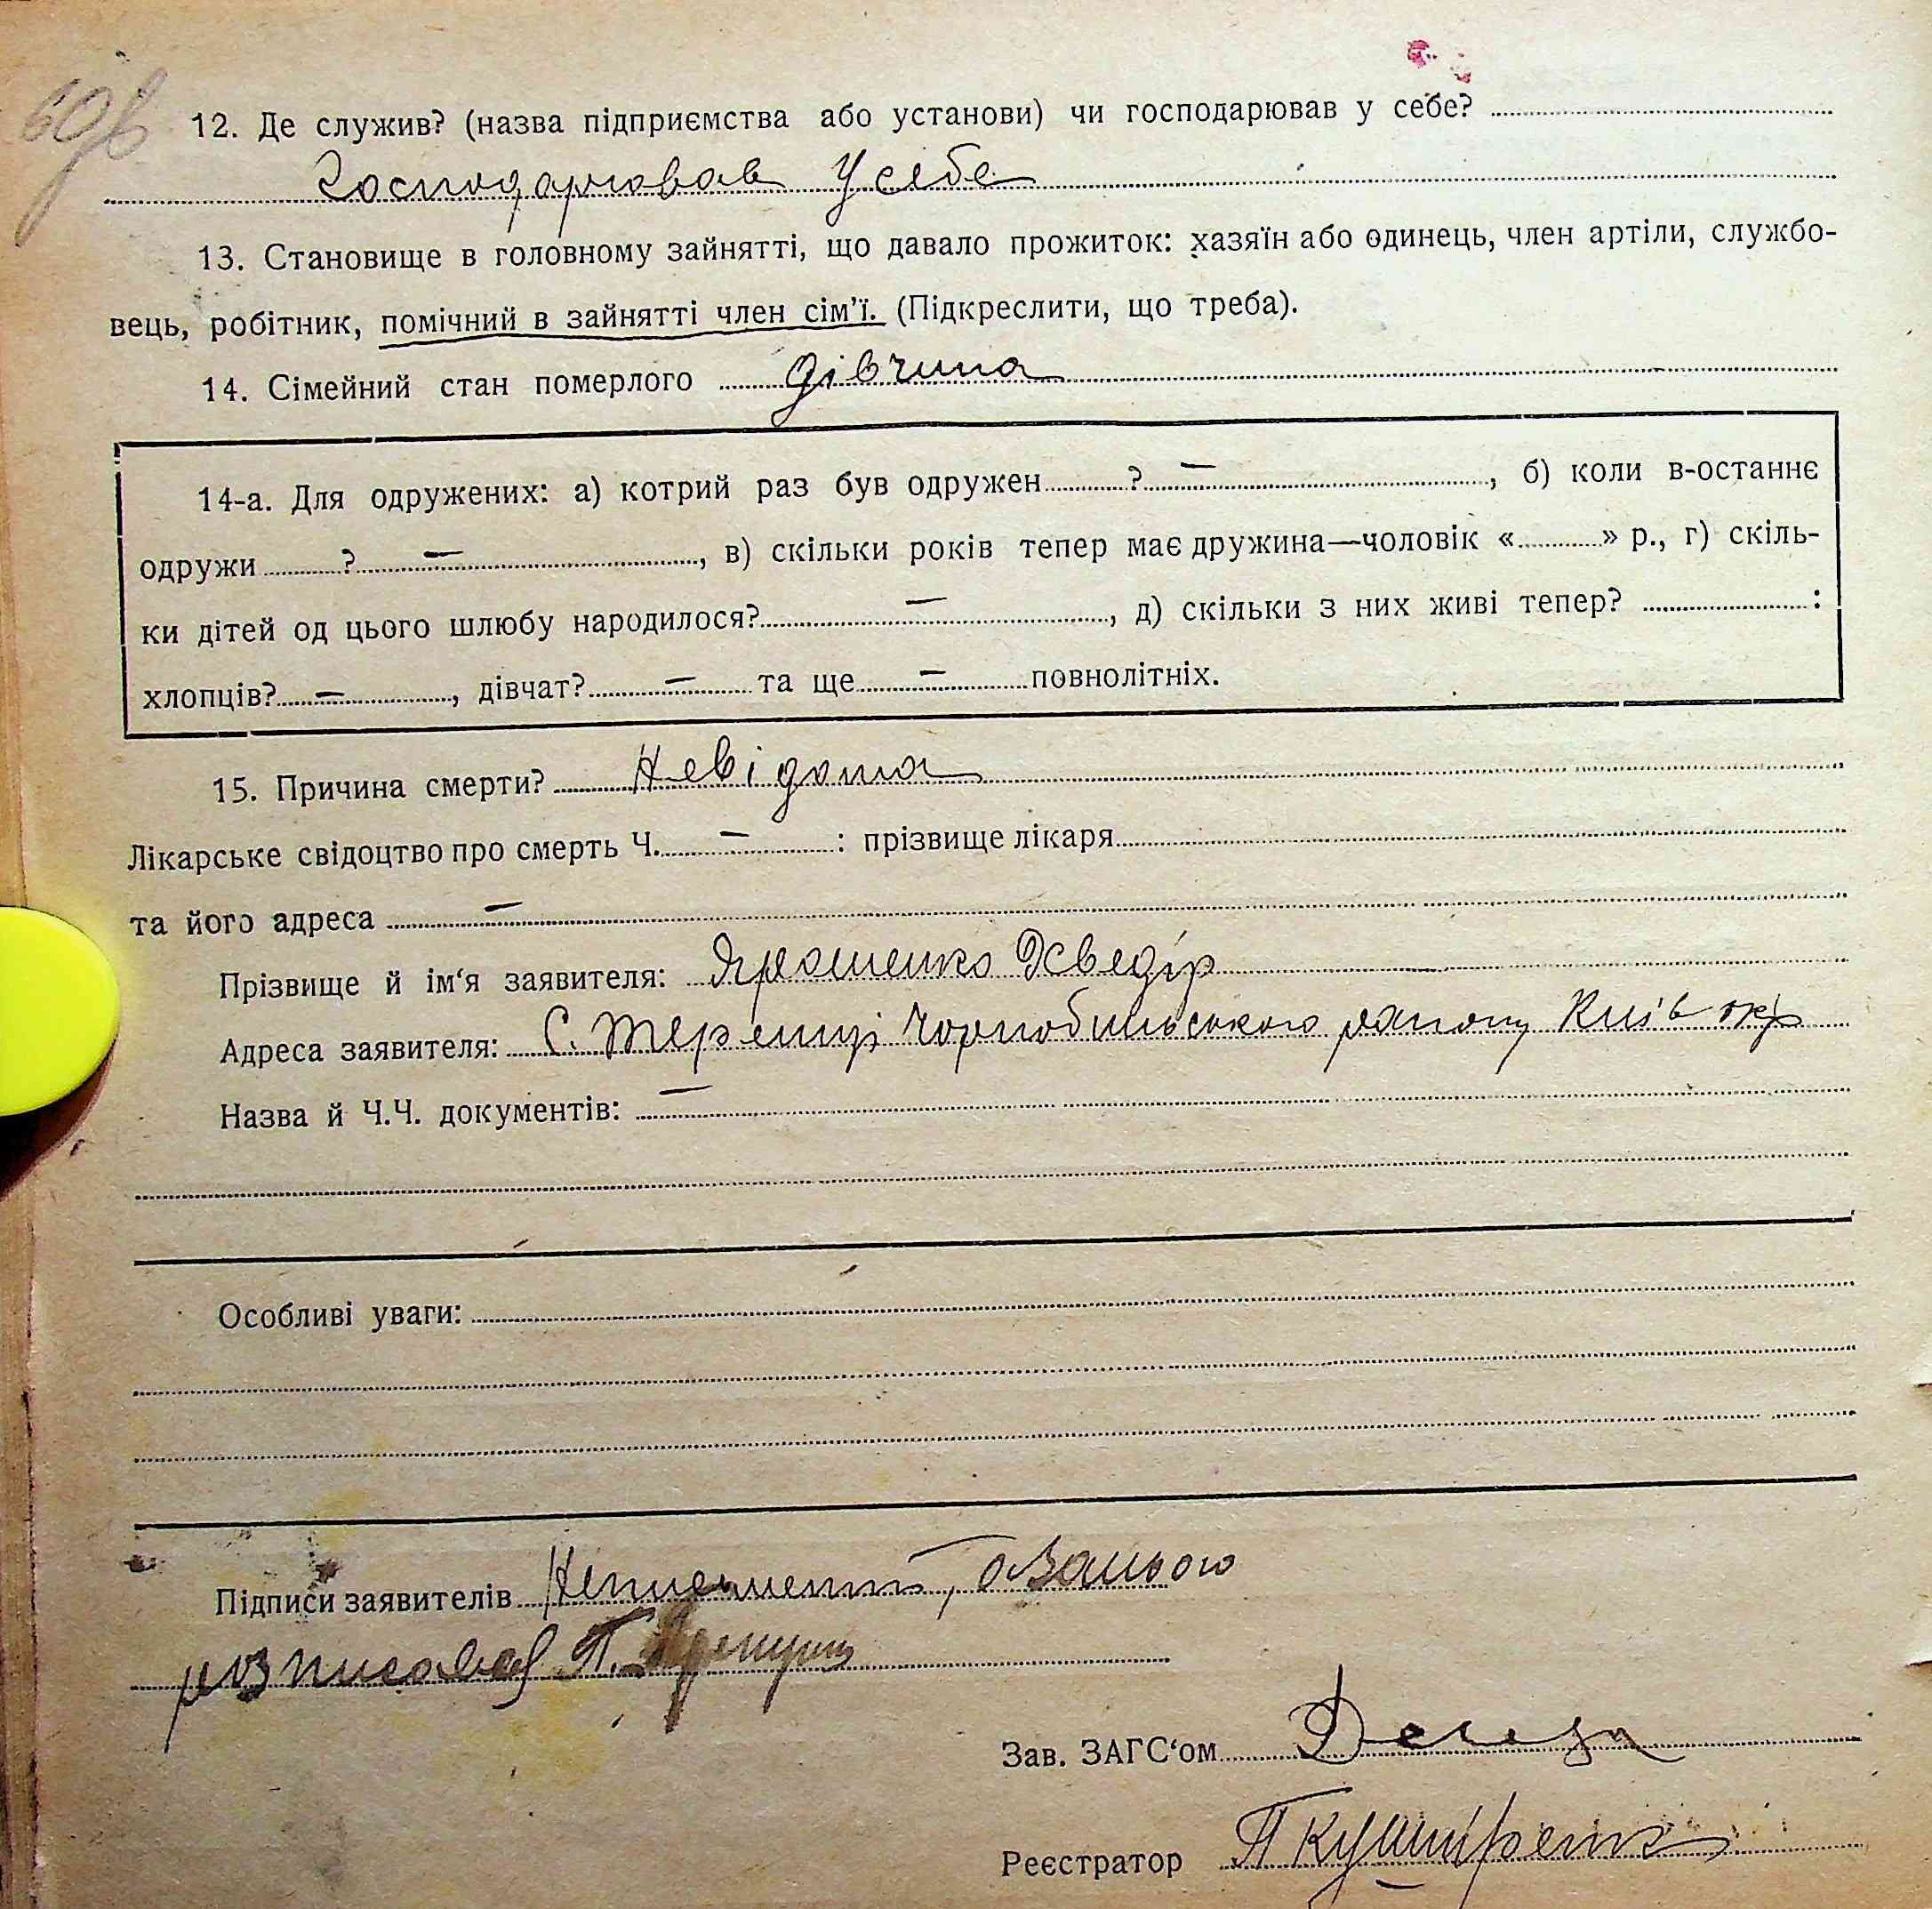 12. Де служив? (назва підприємства або установи) чи господарював у себе?
Господарював у себе
13. Становище в головному зайнятті, що давало прожиток: хазяїн або одинець, член артіли, службо-
вець, робітник, помічний в зайнятті член сім’ї. (Підкреслити, що треба).
14. Сімейний стан померлого дівчина
14-а. Для одружених: а) котрий раз був одружен ? —, б) коли в-останнє
одружи ? —, в) скільки років тепер має дружина—чоловік « » р., г) скіль-
ки дітей од цього шлюбу народилося? —, д) скільки з них живі тепер? :
хлопців? —, дівчат? — та ще — повнолітніх.
15. Причина смерти? Невідома
Лікарське свідоцтво про смерть Ч. — : прізвище лікаря
та його адреса —
Прізвище й ім‘я заявителя: Ярошенко
Адреса заявителя: С. Теремці Чорнобильського району Київ окр
Назва й Ч.Ч. документів: —
Особливі уваги:
Підписи заявителів Неписьменний, за нього
розписався П.
Зав. ЗАГС‘ом
Реєстратор